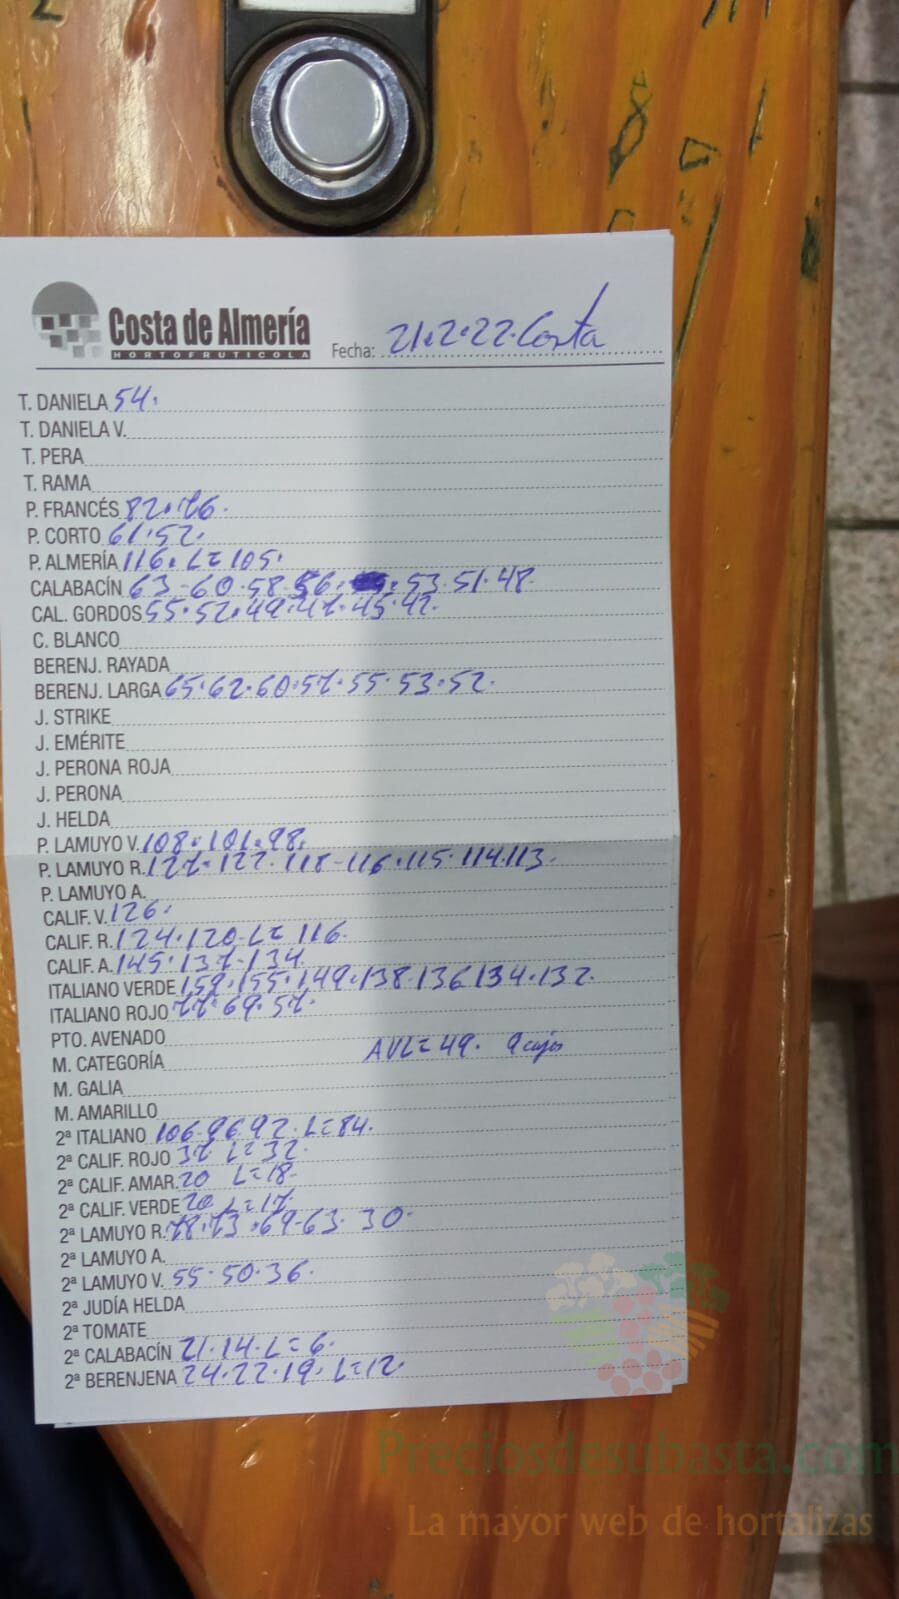 Costa de Almería
HORTOFRUTICOLA
Fecha: 21.2.22. Costa
T. DANIELA 54.
T. DANIELA V.
T. PERA
T. RAMA
P. FRANCÉS 82.76.
P. CORTO 61.52.
P. ALMERÍA 116. L=105.
CALABACÍN 63-60.58.56. 53.51.48.
CAL. GORDOS 55.52.49.47.45.42.
C. BLANCO
BERENJ. RAYADA
BERENJ. LARGA 65.62.60.57.55.53.52.
J. STRIKE
J. EMÉRITE
J. PERONA ROJA
J. PERONA
J. HELDA
P. LAMUYO V. 108.101.98.
P. LAMUYO R. 127.122.118-116.115.114.113.
P. LAMUYO A.
CALIF. V. 126.
CALIF. R. 124.120-L=116.
CALIF. A. 145.137-134
ITALIANO VERDE 159.155.149.138.136 134.132.
ITALIANO ROJO 77.69.57.
PTO. AVENADO
M. CATEGORÍA AVL=49. 9 cajas
M. GALIA
M. AMARILLO
2ª ITALIANO 106.96.92. L=84.
2ª CALIF. ROJO 37 L=32.
2ª CALIF. AMAR. 20 L=18.
2ª CALIF. VERDE 20 L=17.
2ª LAMUYO R. 78.73.69-63.30.
2ª LAMUYO A.
2ª LAMUYO V. 55-50.36.
2ª JUDÍA HELDA
2ª TOMATE
2ª CALABACÍN 21.14.L=6.
2ª BERENJENA 24.22.19. L=12.
Preciosdesubasta.com
La mayor web de hortalizas